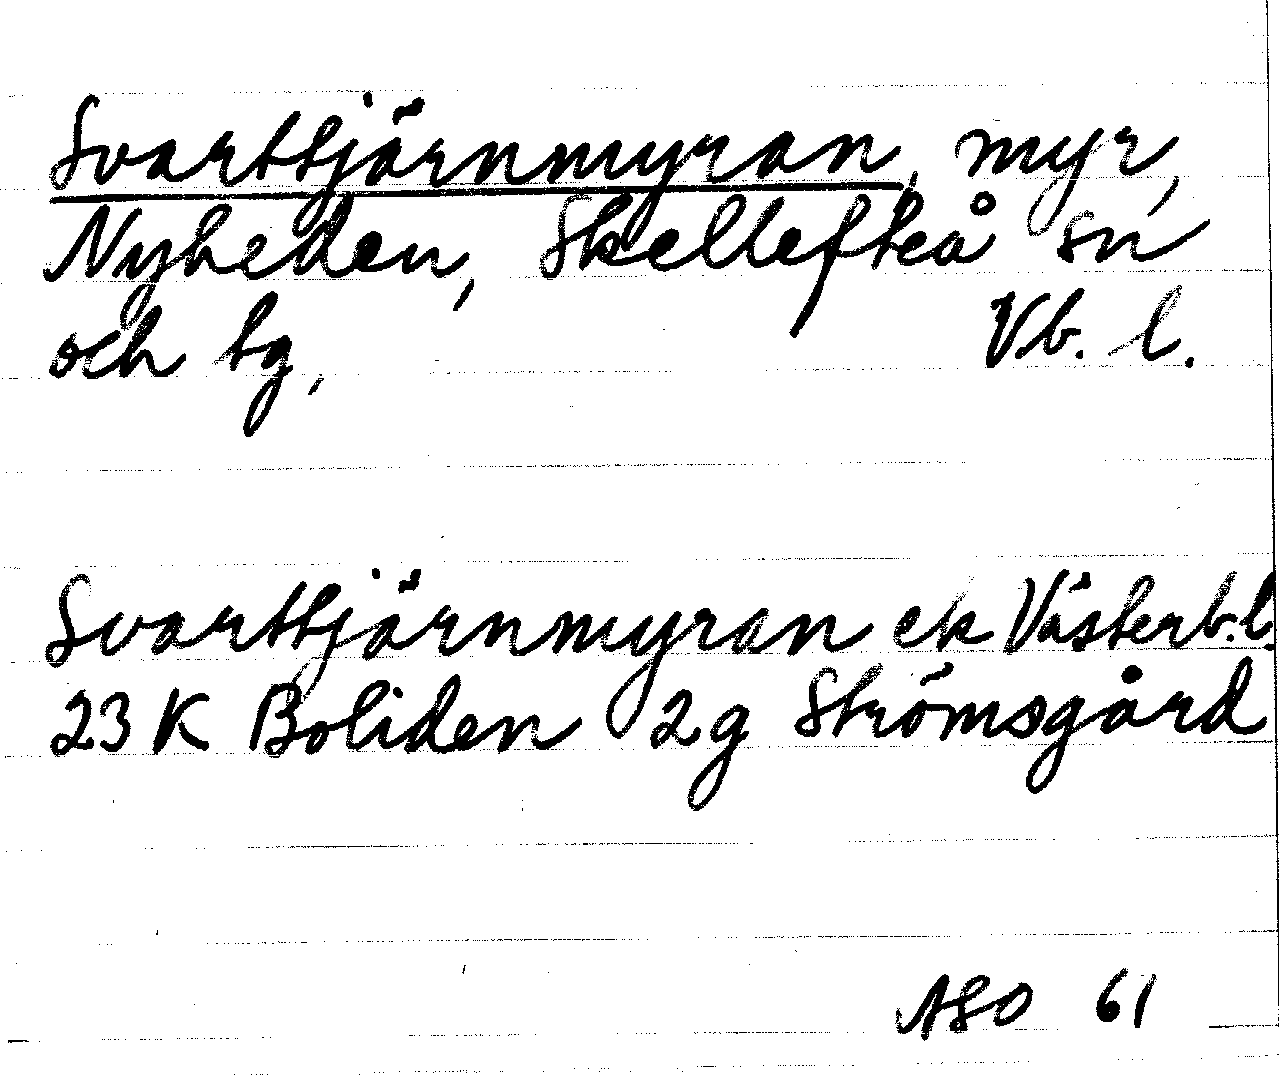 Svarttjärnmyran, myr,
Nyheden, Skellefteå sn
och tg, Vb. l.
Svarttjärnmyran ek Västerb.l.
23 K Boliden 2g Strömsgård
ASO 61